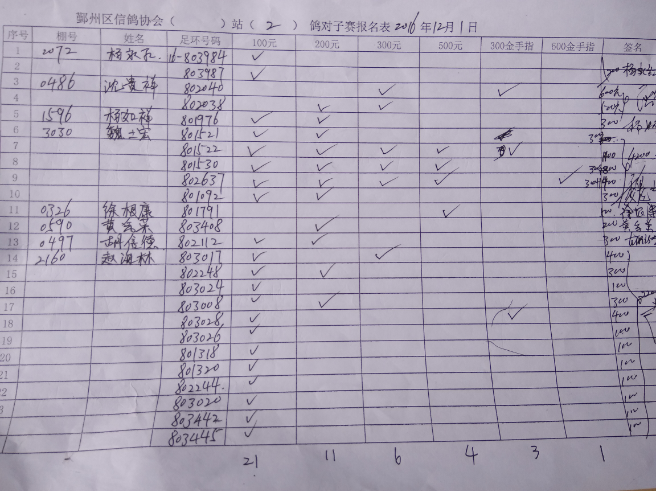 鄞州区信鸽协会（ ）站（2）鸽对子赛报名表2016年12月1日
序号 棚号 姓名 足环号码 100元 200元 300元 500元 300金手指 600金手指 签名
1 2072 16-803984 ✓
2 803987 ✓
3 0486 沈贵祥 802040 ✓ ✓
4 802038 ✓ ✓
5 1596 杨如祥 801976 ✓ ✓ 300
6 3030 801521 ✓ ✓
7 801522 ✓ ✓ ✓ ✓ ✓
8 801530 ✓ ✓ ✓ ✓
9 802637 ✓ ✓ ✓ ✓ ✓
10 801092 ✓ ✓ 300
11 0326 徐根康 801791 ✓
12 0590 803408 ✓ 200
13 0497 802112 ✓ ✓ 300
14 2160 赵海林 803017 ✓ ✓ 400
15 802248 ✓ ✓ 300
16 803024 ✓ 100
17 803008 ✓ ✓ 300
18 803028 ✓ ✓ 400
19 803026 ✓ 100
20 801318 ✓ 100
801320 ✓ 100
802244 ✓ 100
803020 ✓ 100
803442 ✓ 100
803445 ✓ 100
21 11 6 4 3 1